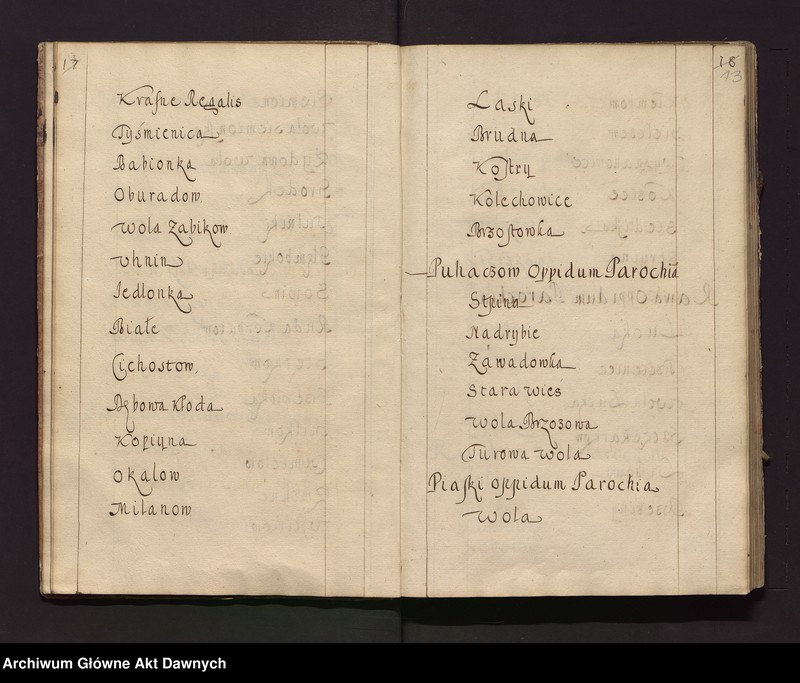 17
Krasne Regalis
Tyśmienica
Babionka
Oburadow
Wola Zabikow
Vhnin
Iedlonka
Białe
Cichostow
Dębowa Kłoda
Kopiyna
Okalow
Milanow
18
13
Laski
Brudna
Kostry
Kolechowice
Brzostowka
Puhaczow Oppidum Parochia
Nadrybie
Zawadowka
Stara Wies
Wola Brzozowa
Turowa Wola
Piaski Oppidum Parochia
Wola
Archiwum Główne Akt Dawnych